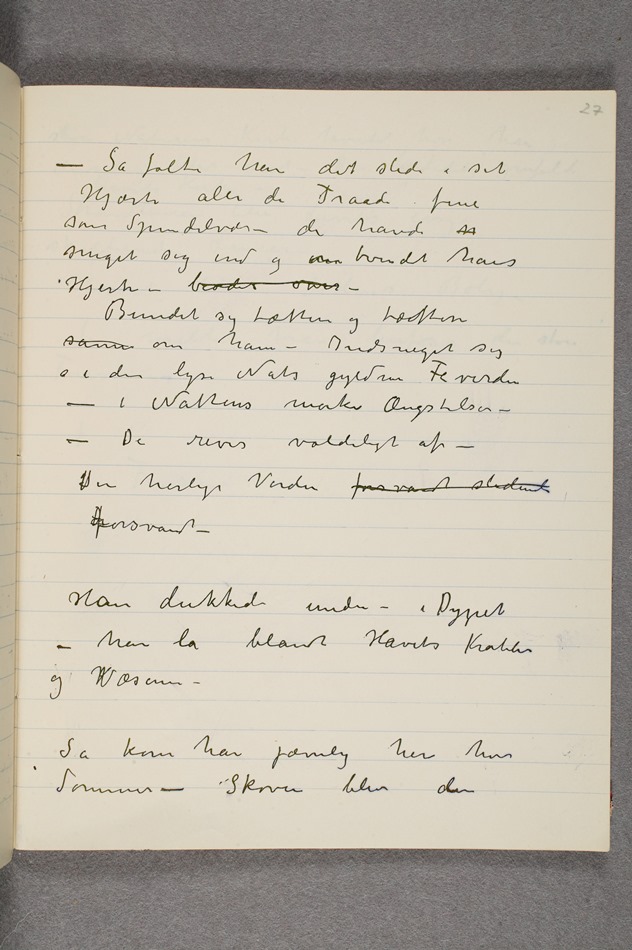 27
— Så følte han det slide i sit
Hjærte alle de Traade fine
som Spindelvæv — de havde
sneget sig ind og bundet hans
Hjerte —
Bundet sig tættere og tættere
om ham — Indsneget sig
i den lyse Nats gyldne Feverden
— i Nattens mørke Ængstelser —
— De reves voldeligt af —
Den herlige Verden forsvandt
Forsvandt —
Han dukkede under — i Dypet
— han la blandt Havets Krabber
og Væsener —
Så kom han jævnlig her hver
Sommer — Skoven blev den